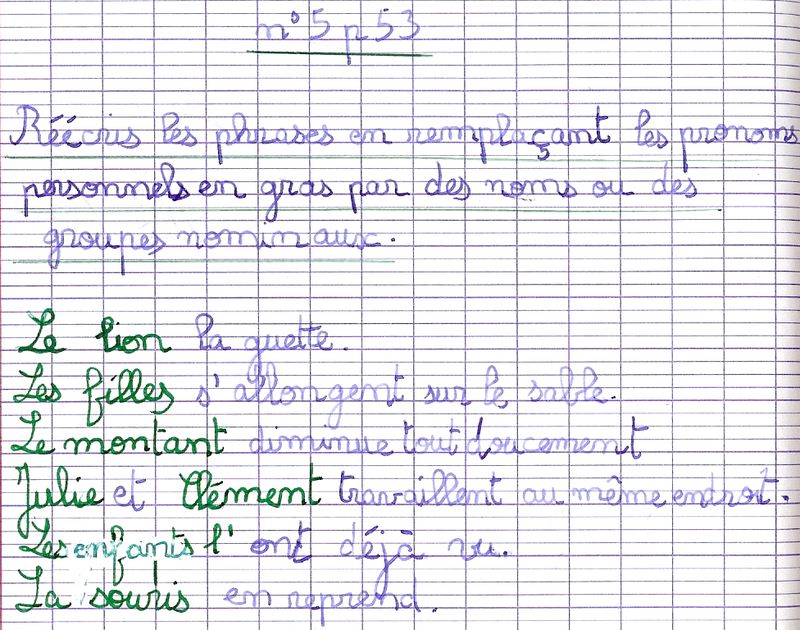 n° 5 p 53
Réécris les phrases en remplaçant les pronoms
personnels en gras par des noms ou des
groupes nominaux.
Le lion la guette.
Les filles s'allongent sur le sable.
Le montant diminue tout doucement
Julie et Clément travaillent au même endroit.
Les enfants l'ont déjà vu.
La souris en reprend.